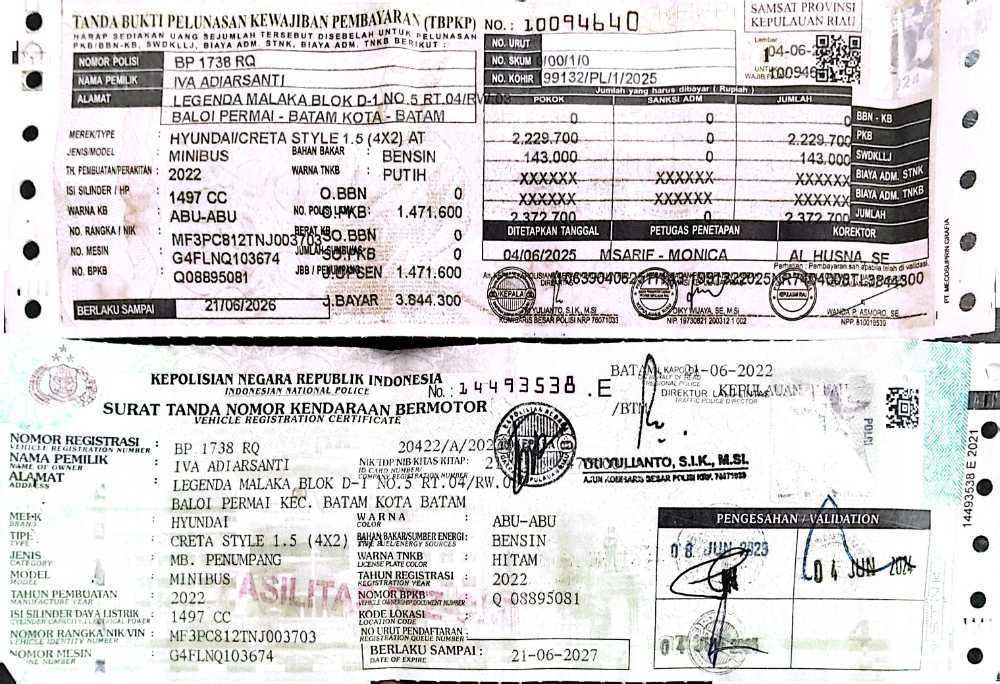 TANDA BUKTI PELUNASAN KEWAJIBAN PEMBAYARAN (TBPKP) NO.: 10094640
HARAP SEDIAKAN UANG SEJUMLAH TERSEBUT DISEBELAH UNTUK PELUNASAN
PKB/BBN-KB, SWDKLLJ, BIAYA ADM. STNK, BIAYA ADM. TNKB BERIKUT :
SAMSAT PROVINSI
KEPULAUAN RIAU
NOMOR POLISI BP 1738 RQ
NAMA PEMILIK IVA ADIARSANTI
ALAMAT LEGENDA MALAKA BLOK D-1 NO.5 RT.04/RW.03
BALOI PERMAI - BATAM KOTA - BATAM
NO. URUT
NO. SKUM /00/1/0
NO. KOHIR 99132/PL/1/2025
Lembar
1
UNTUK
WAJIB
04-06-
MEREK/TYPE : HYUNDAI/CRETA STYLE 1.5 (4X2) AT
JENIS/MODEL : MINIBUS
BAHAN BAKAR : BENSIN
TH. PEMBUATAN/PERAKITAN : 2022
WARNA TNKB : PUTIH
ISI SILINDER / HP : 1497 CC
O.BBN 0
WARNA KB : ABU-ABU
O.PKB: 1.471.600
NO. RANGKA / NIK : MF3PC812TNJ003703
BERAT KB
SO.BBN 0
NO. MESIN : G4FLNQ103674
SO.PKB 0
NO. BPKB : Q08895081
JBB / PENUMPANG
1.471.600
BERLAKU SAMPAI 21/06/2026
J.BAYAR 3.844.300
Jumlah yang harus dibayar ( Rupiah )
POKOK SANKSI ADM JUMLAH
0 0 0 BBN - KB
2.229.700 0 2.229.700 PKB
143.000 0 143.000 SWDKLLJ
XXXXXX XXXXXX XXXXXX BIAYA ADM. STNK
XXXXXX XXXXXX XXXXXX BIAYA ADM. TNKB
2.372.700 0 2.372.700 JUMLAH
DITETAPKAN TANGGAL PETUGAS PENETAPAN KOREKTOR
04/06/2025 MSARIF - MONICA AL HUSNA, SE
Perhatian : Pembayaran sah apabila telah di validasi.
3844300
KOMBARIS BESAR POLISI NRP 76071033
NIP. 19730821 200312 1 002
WANDA P. ASMORO, SE.
NPP. 810016530
PT. MEDOSUPRIN GRAFIA
KEPOLISIAN NEGARA REPUBLIK INDONESIA
INDONESIAN NATIONAL POLICE
No.: 14493538 .E
SURAT TANDA NOMOR KENDARAAN BERMOTOR
VEHICLE REGISTRATION CERTIFICATE
21-06-2022
DIREKTUR LALU LINTAS
TRAFFIC POLICE DIRECTOR
TRI YULIANTO, S.I.K., M.SI.
AJUN KOMBARIS BESAR POLISI NRP. 76071033
NOMOR REGISTRASI : BP 1738 RQ
VEHICLE REGISTRATION NUMBER
NAMA PEMILIK : IVA ADIARSANTI
NAME OF OWNER
NIK/TDP/NIB/KITAS/KITAP:
ID CARD NUMBER/
COMPANY REGISTRATION NUMBER
ALAMAT : LEGENDA MALAKA BLOK D-1 NO.5 RT.04/RW.
ADDRESS
BALOI PERMAI KEC. BATAM KOTA BATAM
MEREK : HYUNDAI
BRAND
WARNA : ABU-ABU
COLOR
TIPE : CRETA STYLE 1.5 (4X2)
TYPE
BAHAN BAKAR/SUMBER ENERGI : BENSIN
TYPE FUEL/ENERGY SOURCES
JENIS : MB. PENUMPANG
CATEGORY
WARNA TNKB : HITAM
LICENSE PLATE COLOR
MODEL : MINIBUS
MODEL
TAHUN REGISTRASI : 2022
REGISTRATION YEAR
TAHUN PEMBUATAN : 2022
MANUFACTURE YEAR
NOMOR BPKB : Q 08895081
VEHICLE OWNERSHIP DOCUMENT NUMBER
ISI SILINDER/DAYA LISTRIK : 1497 CC
CYLINDER CAPACITY/ELECTRICAL POWER
KODE LOKASI :
LOCATION CODE
NOMOR RANGKA/NIK/VIN : MF3PC812TNJ003703
VEHICLE IDENTITY NUMBER
NO URUT PENDAFTARAN :
REGISTRATION QUEUE NUMBER
NOMOR MESIN : G4FLNQ103674
ENGINE NUMBER
BERLAKU SAMPAI : 21-06-2027
DATE OF EXPIRE
PENGESAHAN / VALIDATION
08 JUN 2023
04 JUN 2024
14493538 E 2021